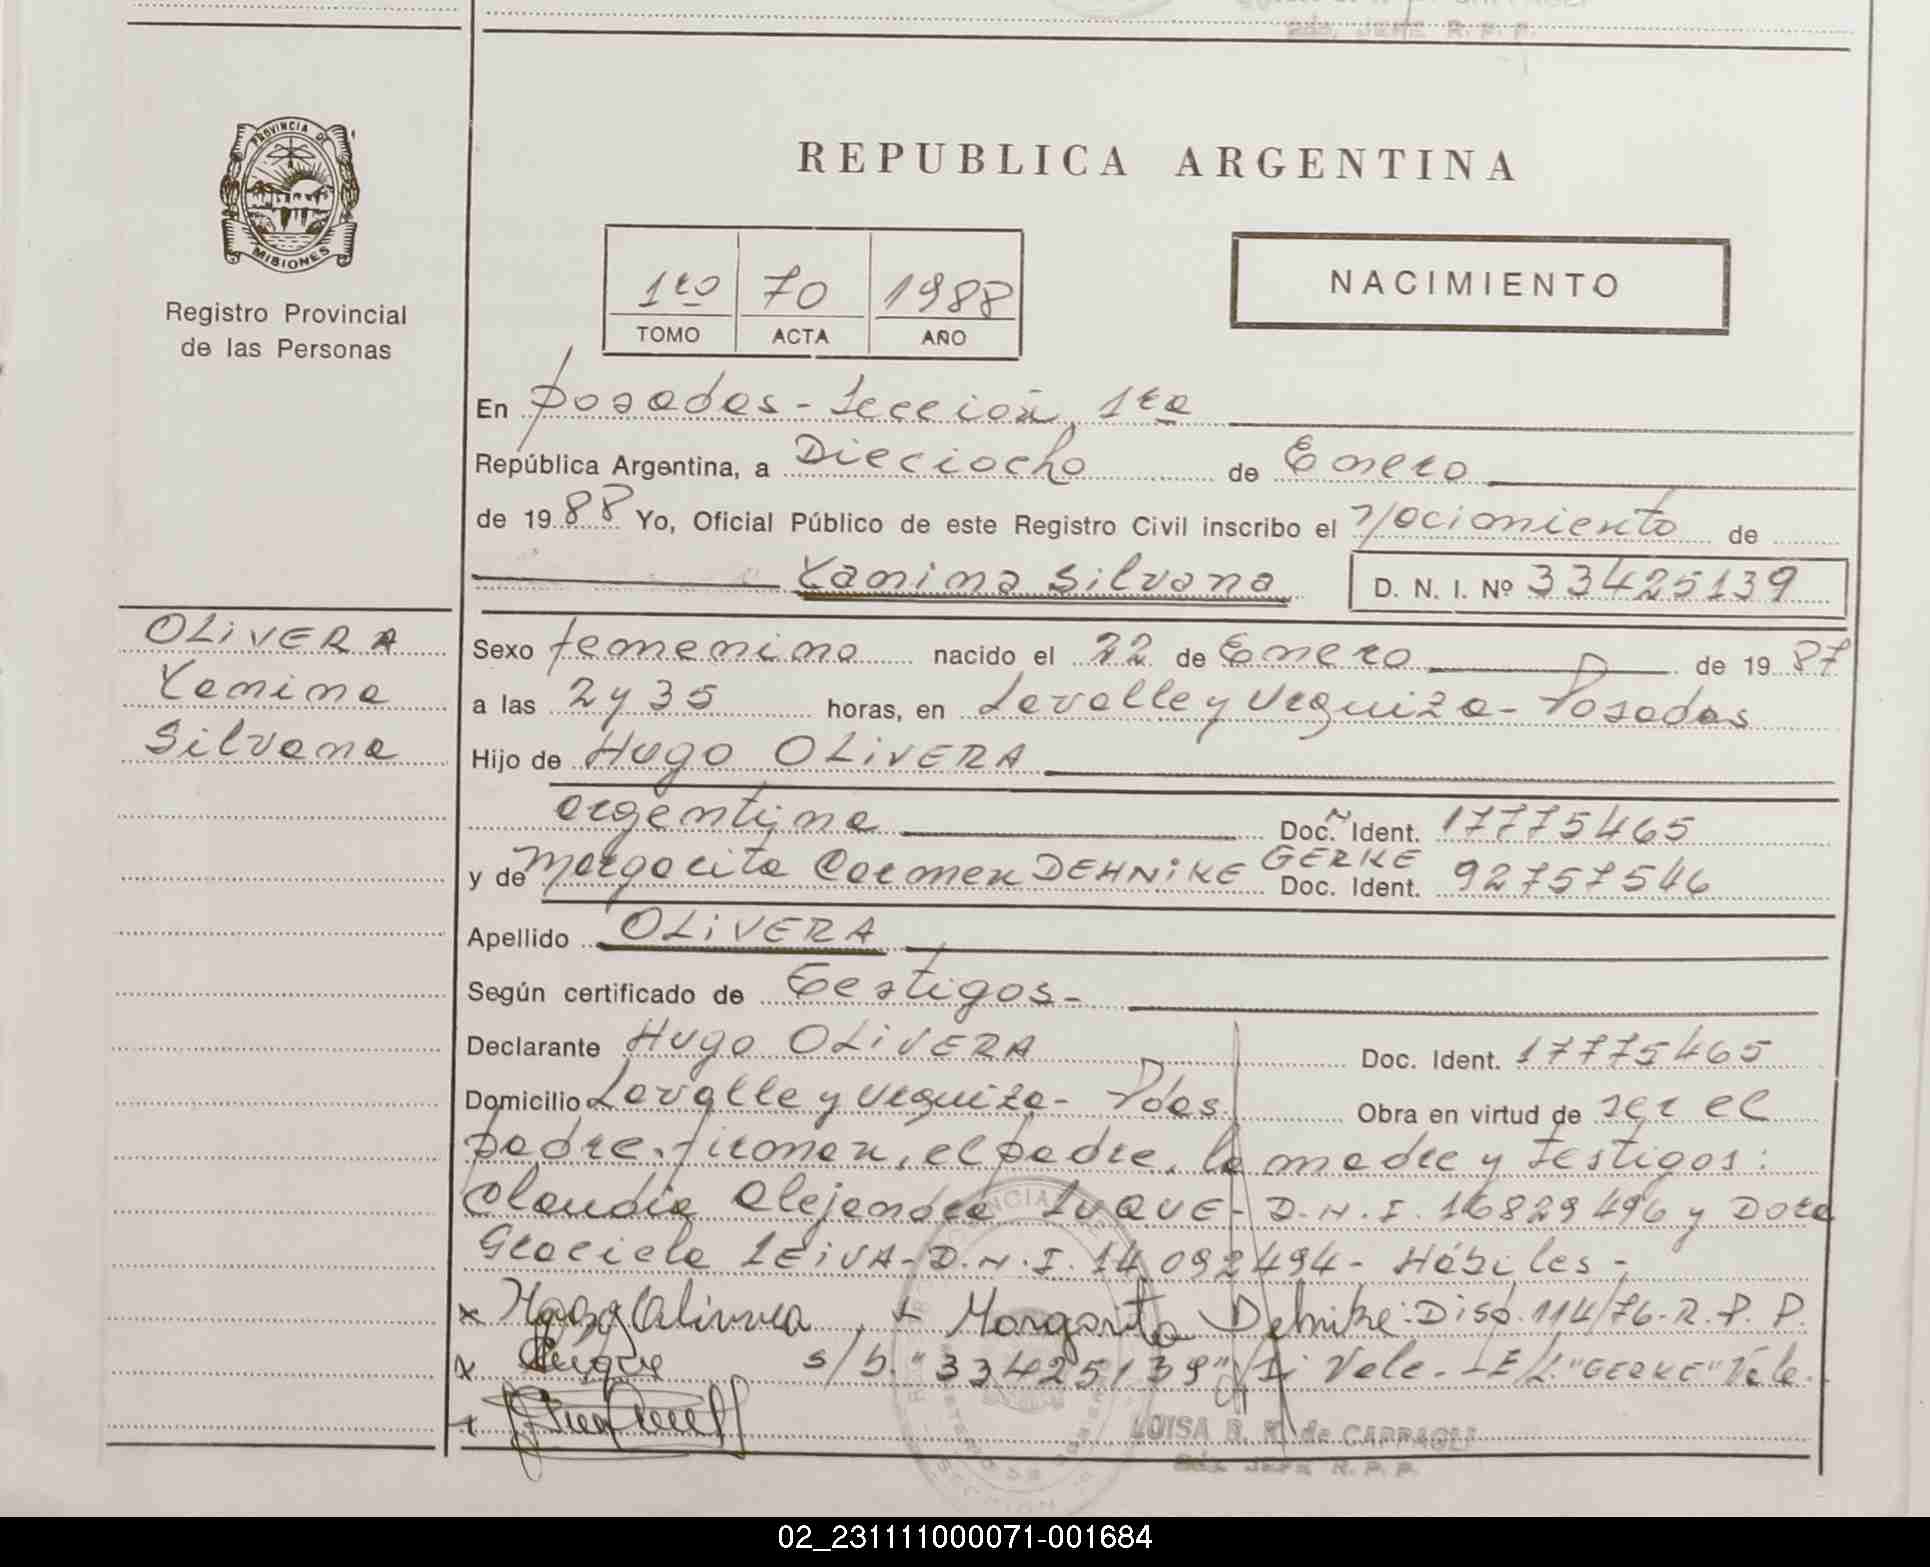 PROVINCIA DE
MISIONES
Registro Provincial
de las Personas
OLIVERA
Yamina
Silvana
REPUBLICA ARGENTINA
1ro 70 1988
TOMO ACTA AÑO
NACIMIENTO
En posadas - Sección 1ra
República Argentina, a Dieciocho de Enero
de 1988 Yo, Oficial Público de este Registro Civil inscribo el Nacimiento de
Yamina Silvana D. N. I. Nº 33425139
Sexo femenino nacido el 22 de Enero de 1987
a las 2 y 35 horas, en Lavalle y Urquiza - Posadas
Hijo de Hugo OLIVERA
argentina Doc. Ident. 17775465
y de Margarita Carmen DEHNIKE GERKE Doc. Ident. 92757546
Apellido OLIVERA
Según certificado de Testigos -
Declarante Hugo OLIVERA Doc. Ident. 17775465
Domicilio Lavalle y Urquiza - Pdas Obra en virtud de ser el
padre. firman, el padre, la madre y testigos:
Claudia Alejandra LUQUE - D.N.I. 16829496 y Dora
Graciela LEIVA - D.N.I. 14092494 - Hábiles -
x Hugo Olivera + Margarita Dehnike: Disp. 114/76 - R. P. P.
x Luque s/b. "33425139" Si Vale. - E/L. "GERKE" Vale.
LUISA R. de CAPPAGLI
R. P. P.
02_231111000071-001684